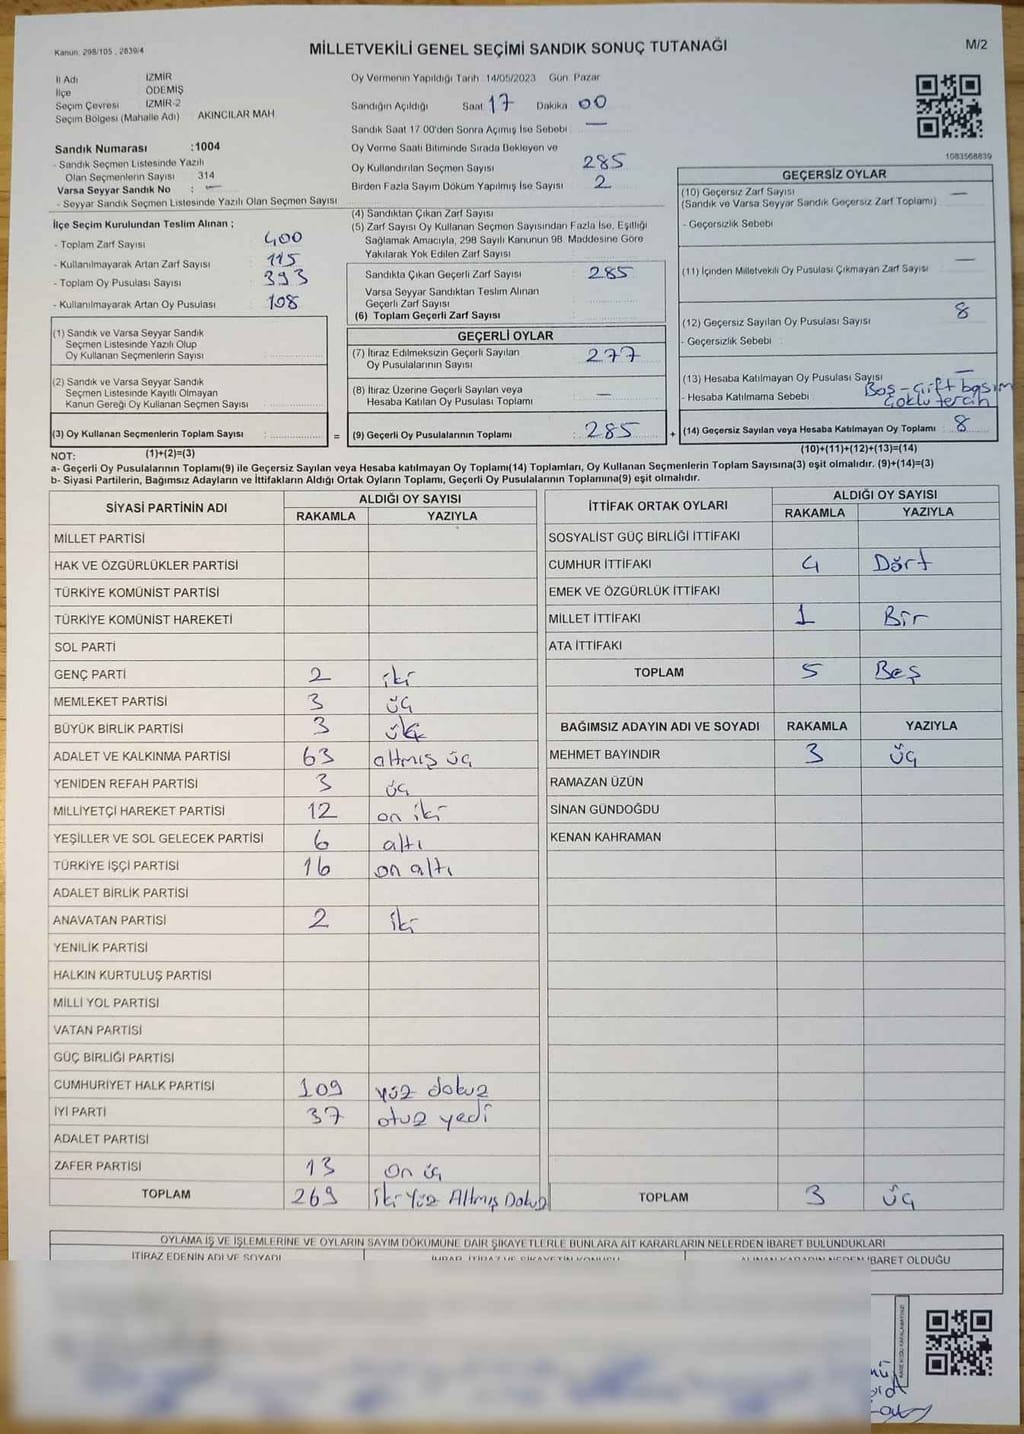 Kanun: 298/105 , 2839/4
MİLLETVEKİLİ GENEL SEÇİMİ SANDIK SONUÇ TUTANAĞI
M/2
İl Adı İZMİR
İlçe ÖDEMİŞ
Seçim Çevresi İZMİR-2
Seçim Bölgesi (Mahalle Adı) AKINCILAR MAH
Sandık Numarası :1004
- Sandık Seçmen Listesinde Yazılı
Olan Seçmenlerin Sayısı 314
Varsa Seyyar Sandık No : —
- Seyyar Sandık Seçmen Listesinde Yazılı Olan Seçmen Sayısı
Oy Vermenin Yapıldığı Tarih 14/05/2023 Gün Pazar
Sandığın Açıldığı Saat 17 Dakika 00
Sandık Saat 17:00'den Sonra Açılmış İse Sebebi —
Oy Verme Saati Bitiminde Sırada Bekleyen ve
Oy Kullandırılan Seçmen Sayısı 285
Birden Fazla Sayım Döküm Yapılmış İse Sayısı 2
1083568839
İlçe Seçim Kurulundan Teslim Alınan ;
- Toplam Zarf Sayısı 400
- Kullanılmayarak Artan Zarf Sayısı 115
- Toplam Oy Pusulası Sayısı 393
- Kullanılmayarak Artan Oy Pusulası 108
(1) Sandık ve Varsa Seyyar Sandık
Seçmen Listesinde Yazılı Olup
Oy Kullanan Seçmenlerin Sayısı
(2) Sandık ve Varsa Seyyar Sandık
Seçmen Listesinde Kayıtlı Olmayan
Kanun Gereği Oy Kullanan Seçmen Sayısı
(3) Oy Kullanan Seçmenlerin Toplam Sayısı :
(1)+(2)=(3)
=
(4) Sandıktan Çıkan Zarf Sayısı
(5) Zarf Sayısı Oy Kullanan Seçmen Sayısından Fazla İse, Eşitliği
Sağlamak Amacıyla, 298 Sayılı Kanunun 98. Maddesine Göre
Yakılarak Yok Edilen Zarf Sayısı
Sandıkta Çıkan Geçerli Zarf Sayısı 285
Varsa Seyyar Sandıktan Teslim Alınan
Geçerli Zarf Sayısı
(6) Toplam Geçerli Zarf Sayısı
GEÇERLİ OYLAR
(7) İtiraz Edilmeksizin Geçerli Sayılan
Oy Pusulalarının Sayısı 277
(8) İtiraz Üzerine Geçerli Sayılan veya
Hesaba Katılan Oy Pusulası Toplamı —
(9) Geçerli Oy Pusulalarının Toplamı : 285
+
GEÇERSİZ OYLAR
(10) Geçersiz Zarf Sayısı —
(Sandık ve Varsa Seyyar Sandık Geçersiz Zarf Toplamı)
- Geçersizlik Sebebi
(11) İçinden Milletvekili Oy Pusulası Çıkmayan Zarf Sayısı —
(12) Geçersiz Sayılan Oy Pusulası Sayısı 8
- Geçersizlik Sebebi
(13) Hesaba Katılmayan Oy Pusulası Sayısı —
- Hesaba Katılmama Sebebi Boş - Çift basım
Çoklu tercih
(14) Geçersiz Sayılan veya Hesaba Katılmayan Oy Toplamı 8
(10)+(11)+(12)+(13)=(14)
NOT:
a- Geçerli Oy Pusulalarının Toplamı(9) ile Geçersiz Sayılan veya Hesaba katılmayan Oy Toplamı(14) Toplamları, Oy Kullanan Seçmenlerin Toplam Sayısına(3) eşit olmalıdır. (9)+(14)=(3)
b- Siyasi Partilerin, Bağımsız Adayların ve İttifakların Aldığı Ortak Oyların Toplamı, Geçerli Oy Pusulalarının Toplamına(9) eşit olmalıdır.
SİYASİ PARTİNİN ADI ALDIĞI OY SAYISI
RAKAMLA YAZIYLA
MİLLET PARTİSİ
HAK VE ÖZGÜRLÜKLER PARTİSİ
TÜRKİYE KOMÜNİST PARTİSİ
TÜRKİYE KOMÜNİST HAREKETİ
SOL PARTİ
GENÇ PARTİ 2 iki
MEMLEKET PARTİSİ 3 üç
BÜYÜK BİRLİK PARTİSİ 3
ADALET VE KALKINMA PARTİSİ 63 altmış üç
YENİDEN REFAH PARTİSİ 3 üç
MİLLİYETÇİ HAREKET PARTİSİ 12 on iki
YEŞİLLER VE SOL GELECEK PARTİSİ 6 altı
TÜRKİYE İŞÇİ PARTİSİ 16 on altı
ADALET BİRLİK PARTİSİ
ANAVATAN PARTİSİ 2 iki
YENİLİK PARTİSİ
HALKIN KURTULUŞ PARTİSİ
MİLLİ YOL PARTİSİ
VATAN PARTİSİ
GÜÇ BİRLİĞİ PARTİSİ
CUMHURİYET HALK PARTİSİ 109 yüz dokuz
İYİ PARTİ 37 otuz yedi
ADALET PARTİSİ
ZAFER PARTİSİ 13 on üç
TOPLAM 269 iki Yüz Altmış Dokuz
İTTİFAK ORTAK OYLARI ALDIĞI OY SAYISI
RAKAMLA YAZIYLA
SOSYALİST GÜÇ BİRLİĞİ İTTİFAKI
CUMHUR İTTİFAKI 4 Dört
EMEK VE ÖZGÜRLÜK İTTİFAKI
MİLLET İTTİFAKI 1 Bir
ATA İTTİFAKI
TOPLAM 5 Beş
BAĞIMSIZ ADAYIN ADI VE SOYADI RAKAMLA YAZIYLA
MEHMET BAYINDIR 3 üç
RAMAZAN ÜZÜN
SİNAN GÜNDOĞDU
KENAN KAHRAMAN
TOPLAM 3 üç
OYLAMA İŞ VE İŞLEMLERİNE VE OYLARIN SAYIM DÖKÜMÜNE DAİR ŞİKAYETLERLE BUNLARA AİT KARARLARIN NELERDEN İBARET BULUNDUKLARI
İTİRAZ EDENİN ADI VE SOYADI
İBARET OLDUĞU